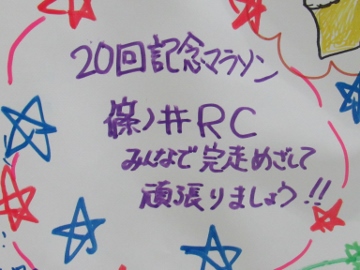 20回記念マラソン
篠ノ井RC
みんなで完走めざして
頑張りましょう!!